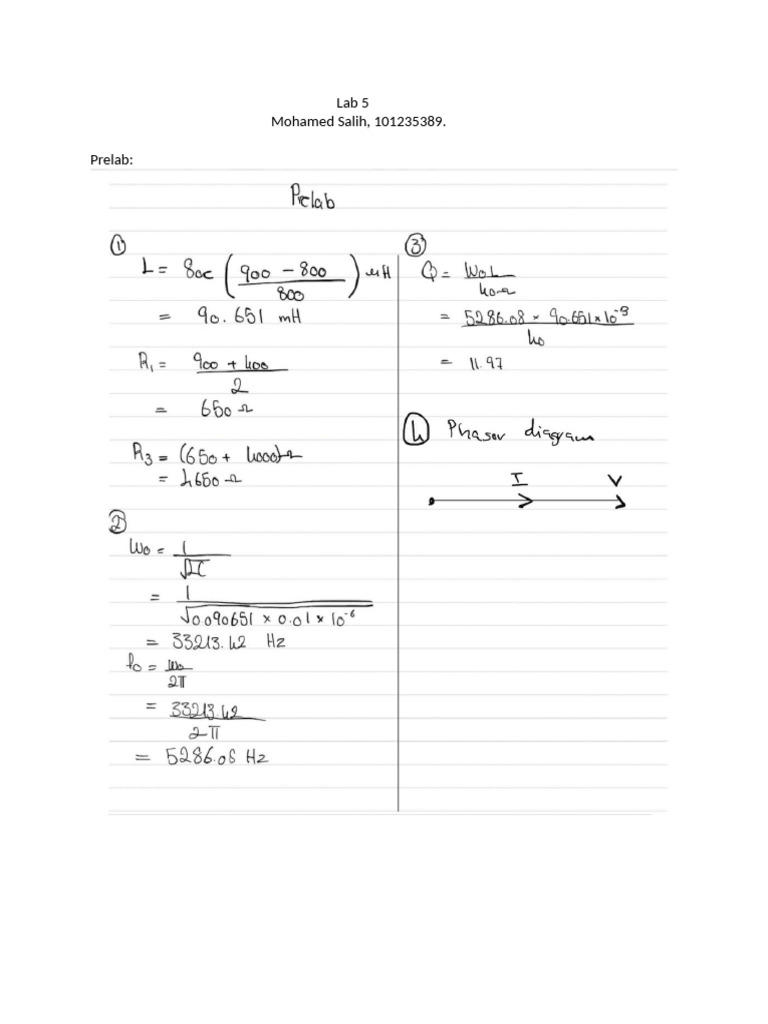 Lab 5
Mohamed Salih, 101235389.
Prelab:
Prelab
①
L = 80c (900 - 800 / 800) µH
= 90.651 mH
R₁ = 900 + 400 / 2
= 650 Ω
R₃ = (650 + 4000) Ω
= 4650 Ω
②
Wo = 1 / √LC
= 1 / √0.090651 × 0.01 × 10⁻⁶
= 33213.42 Hz
fo = wo / 2π
= 33213.42 / 2π
= 5286.08 Hz
③
Q = WoL / 40Ω
= 5286.08 × 90.651 × 10⁻³ / 40
= 11.97
④ Phasor diagram
I V